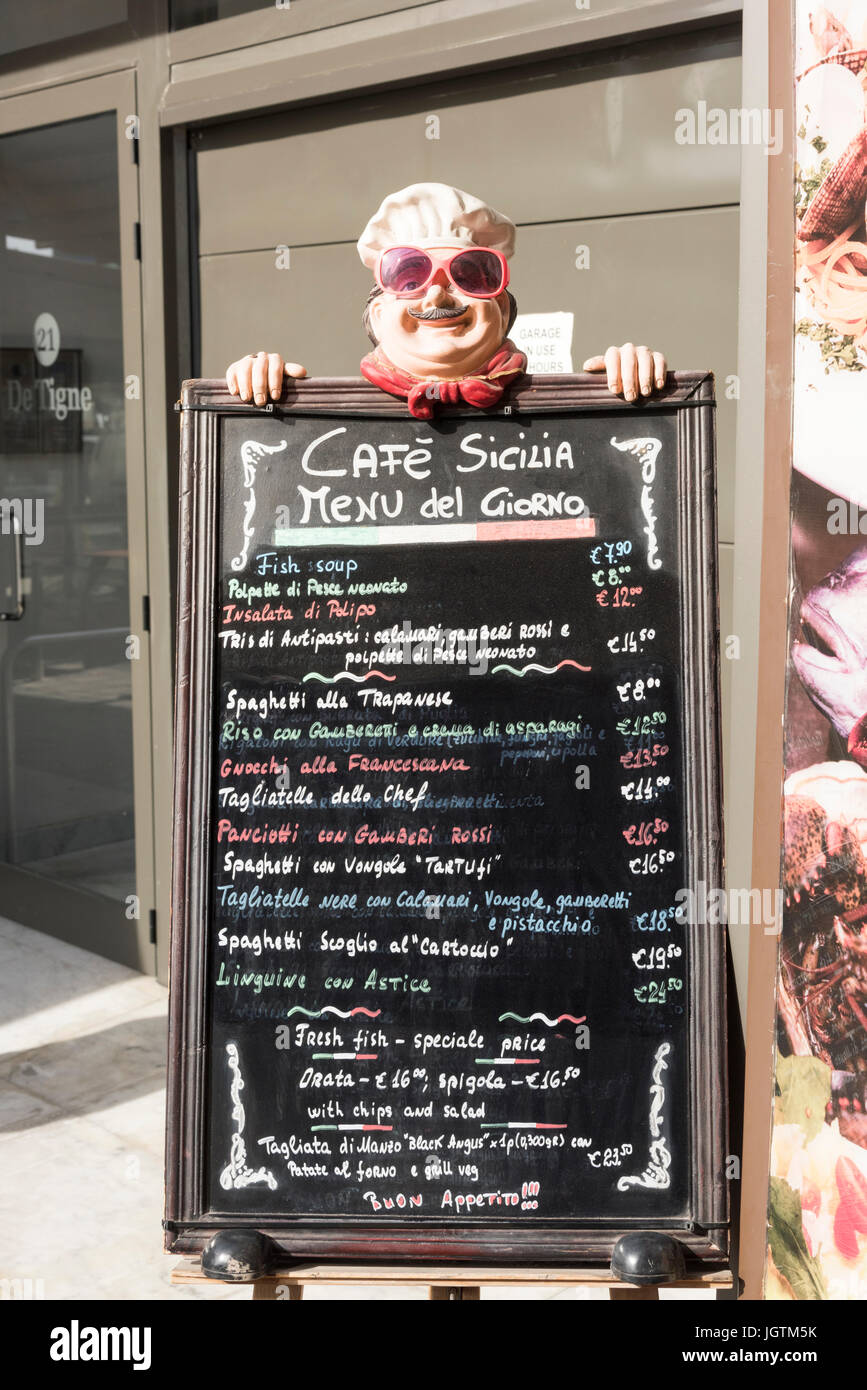 21
De Tigne
GARAGE
IN USE
HOURS
CAFÈ SICILIA
MENU del GIORNO
Fish soup €7.90
Polpette di Pesce neonato €8.00
Insalata di Polipo €12.00
TRIS di ANTIPASTI: calamari, gamberi rossi e
polpette di Pesce neonato €14.50
Spaghetti alla Trapanese €8.00
Riso con Gamberetti e crema di asparagi €12.50
Gnocchi alla Francescana €13.50
Tagliatelle dello Chef €14.00
Panciotti con Gamberi Rossi €16.50
Spaghetti con Vongole "TARTUFI" €16.50
Tagliatelle nere con Calamari, Vongole, gamberetti
e pistacchio €18.50
Spaghetti Scoglio al "Cartoccio" €19.50
Linguine con Astice €24.50
Fresh fish - speciale price
Orata - €16.00, spigola - €16.50
with chips and salad
Tagliata di Manzo "Black Angus" x 1p (0,300gr) con
Patate al forno e grill veg €23.50
Buon Appetito!!!
alamy stock photo
JGTM5K
www.alamy.com